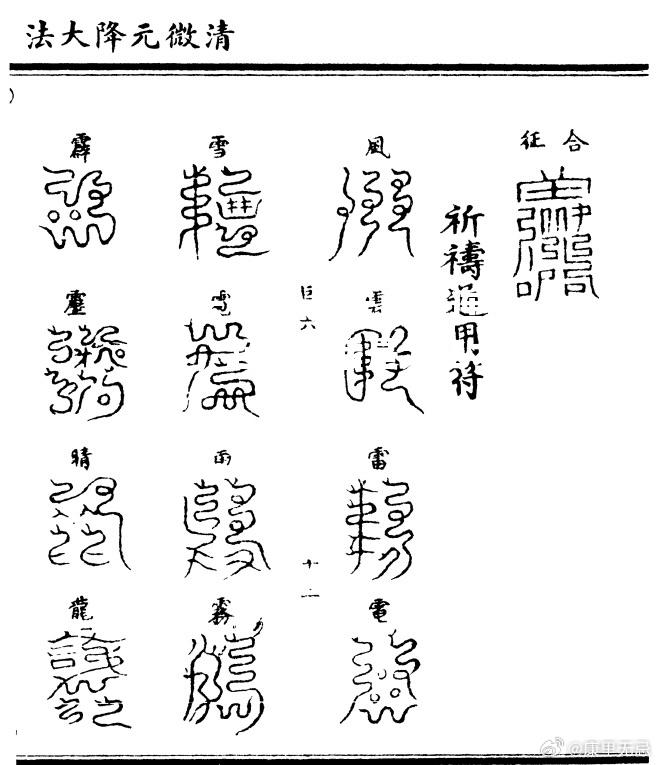 清微元降大法
合征
祈禱通用符
風
雲
雷
電
巨六
十二
雪
雹
雨
霧
霹
靂
晴
龍
@康甲无忌